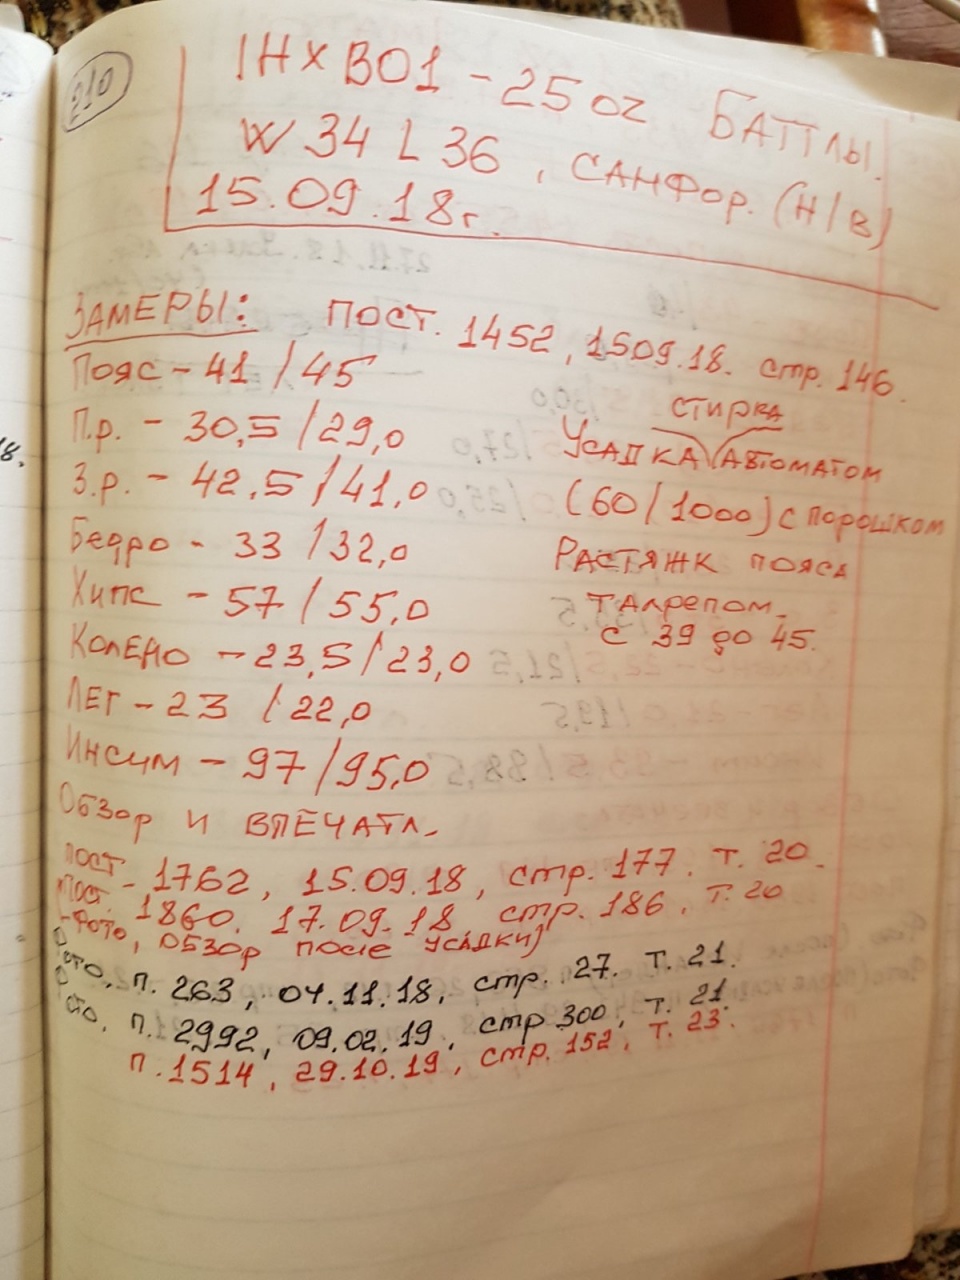 210
IHXB01 - 25oz БАТТЛЫ.
W 34 L 36, САНФОР. (Н/В)
15.09.18г.
ЗАМЕРЫ: ПОСТ. 1452, 1509.18. стр. 146.
Пояс - 41 / 45
П.р. - 30,5 / 29,0
З.р. - 42,5 / 41,0
Бедро - 33 / 32,0
Хипс - 57 / 55,0
Колено - 23,5 / 23,0
Лег - 23 / 22,0
Инсим - 97 / 95,0
стирка
Усадка автоматом
(60/1000) с порошком
Растяжк пояса
талрепом.
с 39 до 45.
Обзор и впечатл.
пост - 1762, 15.09.18, стр. 177. т. 20.
Пост. 1860. 17.09.18, стр. 186, т. 20
- Фото, обзор после усадки)
Фото, п. 263, 04.11.18, стр. 27. т. 21.
Фото, п. 2992, 09.02.19, стр 300, т. 21
п. 1514, 29.10.19, стр. 152, т. 23.
8.